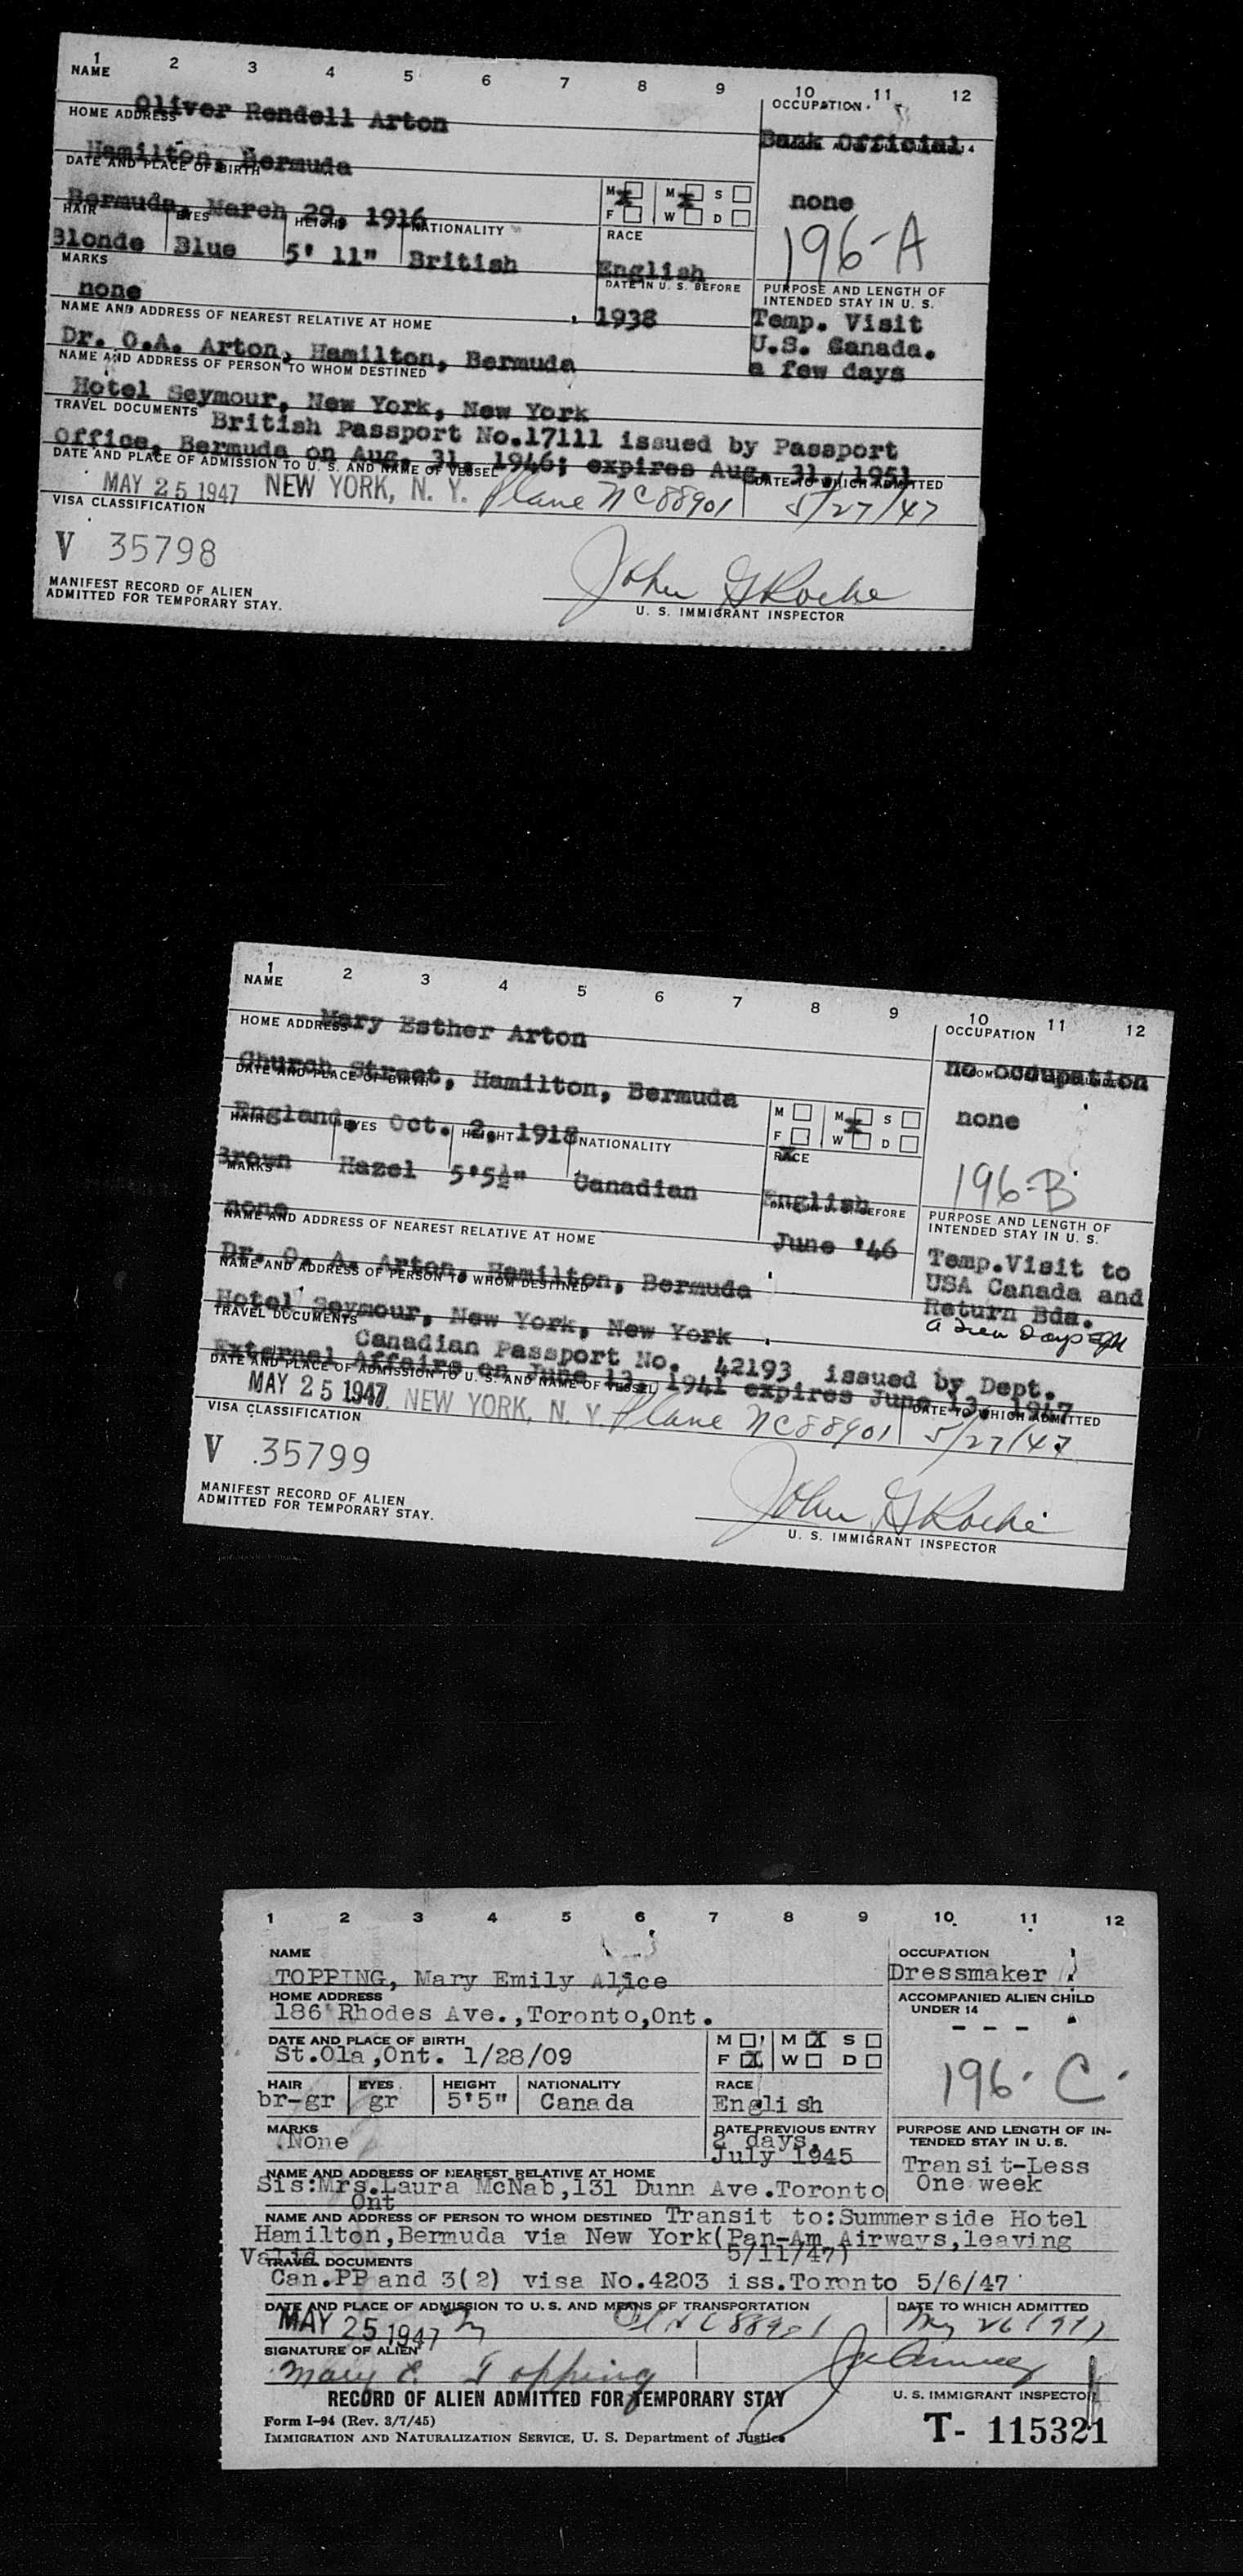 1 2 3 4 5 6 7 8 9 10 11 12
NAME Oliver Rendell Arton
OCCUPATION Bank Official
HOME ADDRESS Hamilton, Bermuda
none
DATE AND PLACE OF BIRTH Bermuda, March 29, 1916
M X F M X S W D
196-A
HAIR Blonde EYES Blue HEIGHT 5' 11" NATIONALITY British
RACE English
MARKS none
DATE IN U. S. BEFORE 1938
PURPOSE AND LENGTH OF
INTENDED STAY IN U. S.
Temp. Visit
U.S. Canada.
a few days
NAME AND ADDRESS OF NEAREST RELATIVE AT HOME
Dr. O.A. Arton, Hamilton, Bermuda
NAME AND ADDRESS OF PERSON TO WHOM DESTINED
Hotel Seymour, New York, New York
TRAVEL DOCUMENTS British Passport No.17111 issued by Passport
Office, Bermuda on Aug. 31, 1946; expires Aug. 31, 1951
DATE AND PLACE OF ADMISSION TO U. S. AND NAME OF VESSEL DATE TO WHICH ADMITTED
MAY 25 1947 NEW YORK, N. Y. Plane NC88901 5/27/47
VISA CLASSIFICATION
V 35798
John G Roche
MANIFEST RECORD OF ALIEN
ADMITTED FOR TEMPORARY STAY.
U. S. IMMIGRANT INSPECTOR
1 2 3 4 5 6 7 8 9 10 11 12
NAME Mary Esther Arton
OCCUPATION no occupation
HOME ADDRESS Church Street, Hamilton, Bermuda
none
DATE AND PLACE OF BIRTH England, Oct. 2, 1918
M F X M X S W D
196-B
HAIR Brown EYES Hazel HEIGHT 5'5½" NATIONALITY Canadian
RACE English
MARKS none
DATE IN U. S. BEFORE June '46
PURPOSE AND LENGTH OF
INTENDED STAY IN U. S.
Temp.Visit to
USA Canada and
Return Bda.
a few Days
NAME AND ADDRESS OF NEAREST RELATIVE AT HOME
Dr. O. A. Arton, Hamilton, Bermuda
NAME AND ADDRESS OF PERSON TO WHOM DESTINED
Hotel Seymour, New York, New York
TRAVEL DOCUMENTS Canadian Passport No. 42193 issued by Dept.
External Affairs on June 13, 1941 expires June 13, 1947
DATE AND PLACE OF ADMISSION TO U. S. AND NAME OF VESSEL DATE TO WHICH ADMITTED
MAY 25 1947 NEW YORK, N. Y. Plane NC88901 5/27/47
VISA CLASSIFICATION
V 35799
John G Roche
MANIFEST RECORD OF ALIEN
ADMITTED FOR TEMPORARY STAY.
U. S. IMMIGRANT INSPECTOR
1 2 3 4 5 6 7 8 9 10 11 12
NAME OCCUPATION
TOPPING, Mary Emily Alice Dressmaker
HOME ADDRESS ACCOMPANIED ALIEN CHILD
UNDER 14
186 Rhodes Ave.,Toronto,Ont. - - -
DATE AND PLACE OF BIRTH M M X S
St.Ola,Ont. 1/28/09 F X W D
196-C
HAIR EYES HEIGHT NATIONALITY RACE
br-gr gr 5'5" Canada English
MARKS DATE PREVIOUS ENTRY PURPOSE AND LENGTH OF IN-
TENDED STAY IN U. S.
None 2 days,
July 1945
Transit-Less
One week
NAME AND ADDRESS OF NEAREST RELATIVE AT HOME
Sis:Mrs.Laura McNab,131 Dunn Ave.Toronto
Ont
NAME AND ADDRESS OF PERSON TO WHOM DESTINED Transit to:Summerside Hotel
Hamilton,Bermuda via New York(Pan-Am Airways,leaving
5/11/47)
Valid
TRAVEL DOCUMENTS
Can.PP and 3(2) visa No.4203 iss.Toronto 5/6/47
DATE AND PLACE OF ADMISSION TO U. S. AND MEANS OF TRANSPORTATION DATE TO WHICH ADMITTED
MAY 25 1947 NC88901 May 26 1947
SIGNATURE OF ALIEN
Mary E. Topping
RECORD OF ALIEN ADMITTED FOR TEMPORARY STAY U. S. IMMIGRANT INSPECTOR
Form I-94 (Rev. 3/7/45)
IMMIGRATION AND NATURALIZATION SERVICE, U. S. Department of Justice
T- 115321